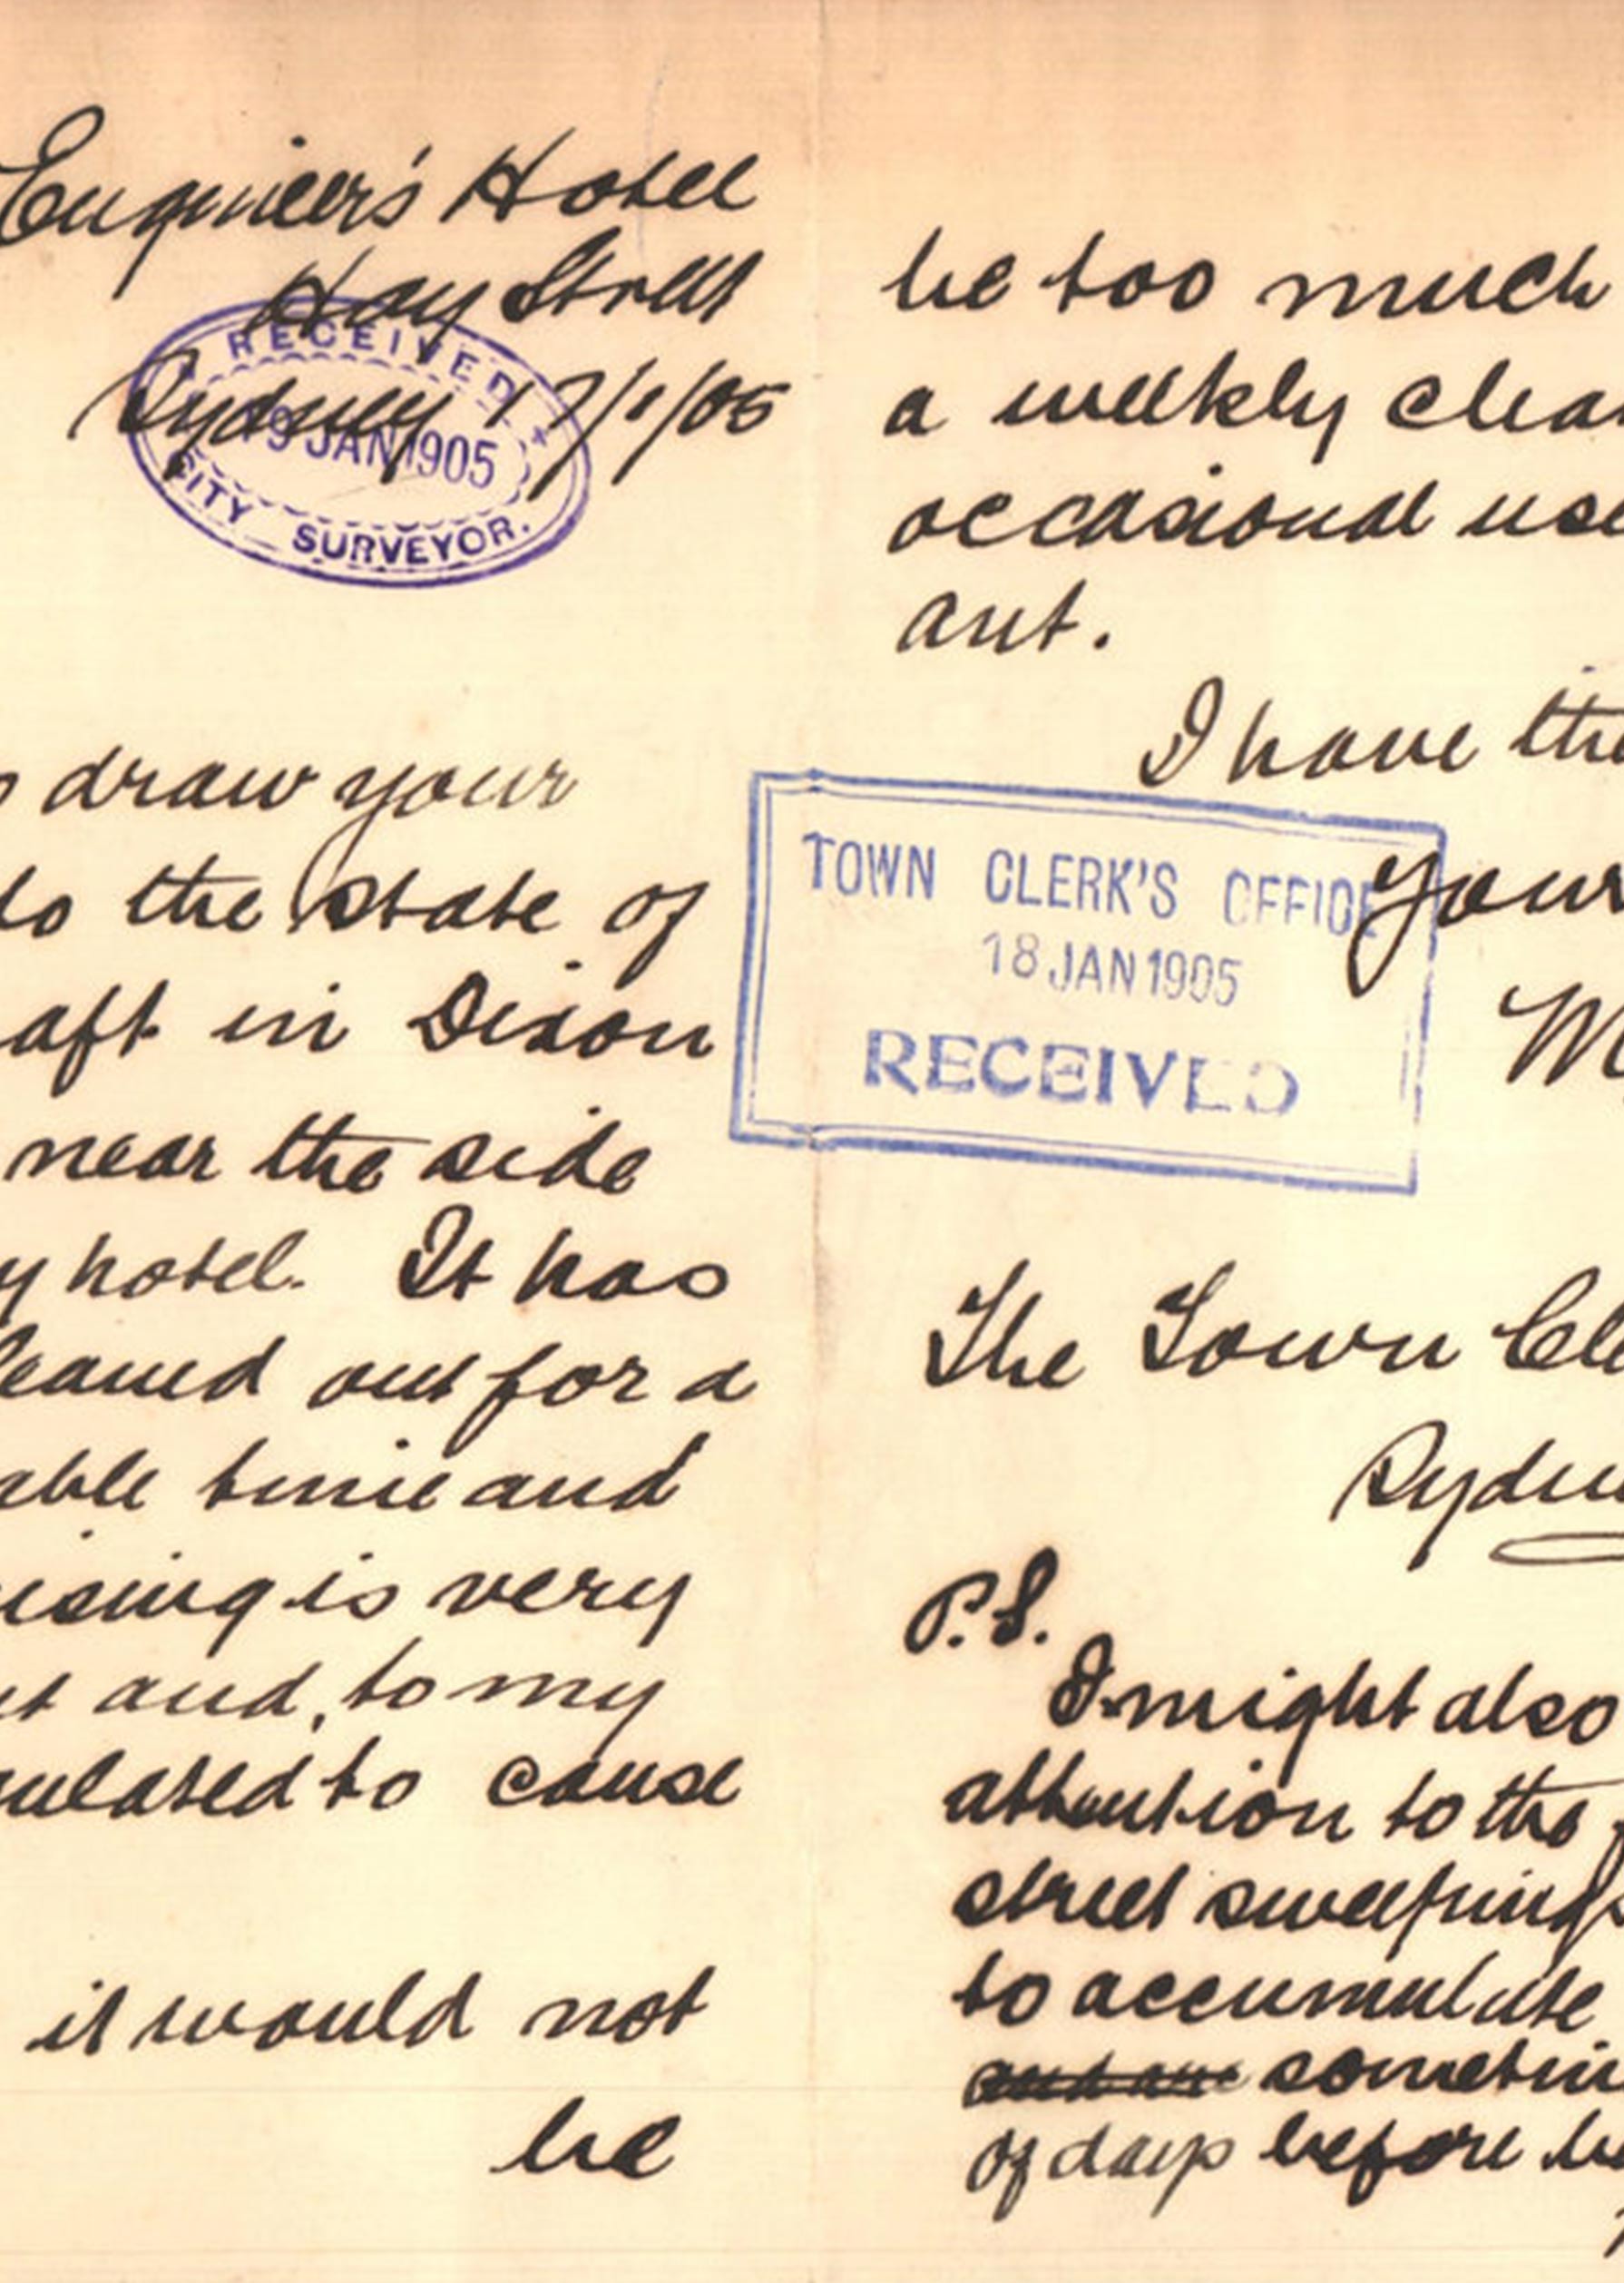 Engineer's Hotel
Hay Street
Sydney 17/1/05
RECEIVED
19 JAN 1905
CITY SURVEYOR.
draw your
to the state of
aft in Dixon
near the side
y hotel. It has
leaned out for a
able time and
ising is very
and, to my
culated to cause
it would not
be
be too much
a weekly clea
occasional use
ant.
I have the
TOWN CLERK'S OFFICE
18 JAN 1905
RECEIVED
Yours
M
The Town Cle
Sydne
P.S.
I might also
attention to the
street sweepings
to accumulate
sometim
of days before be